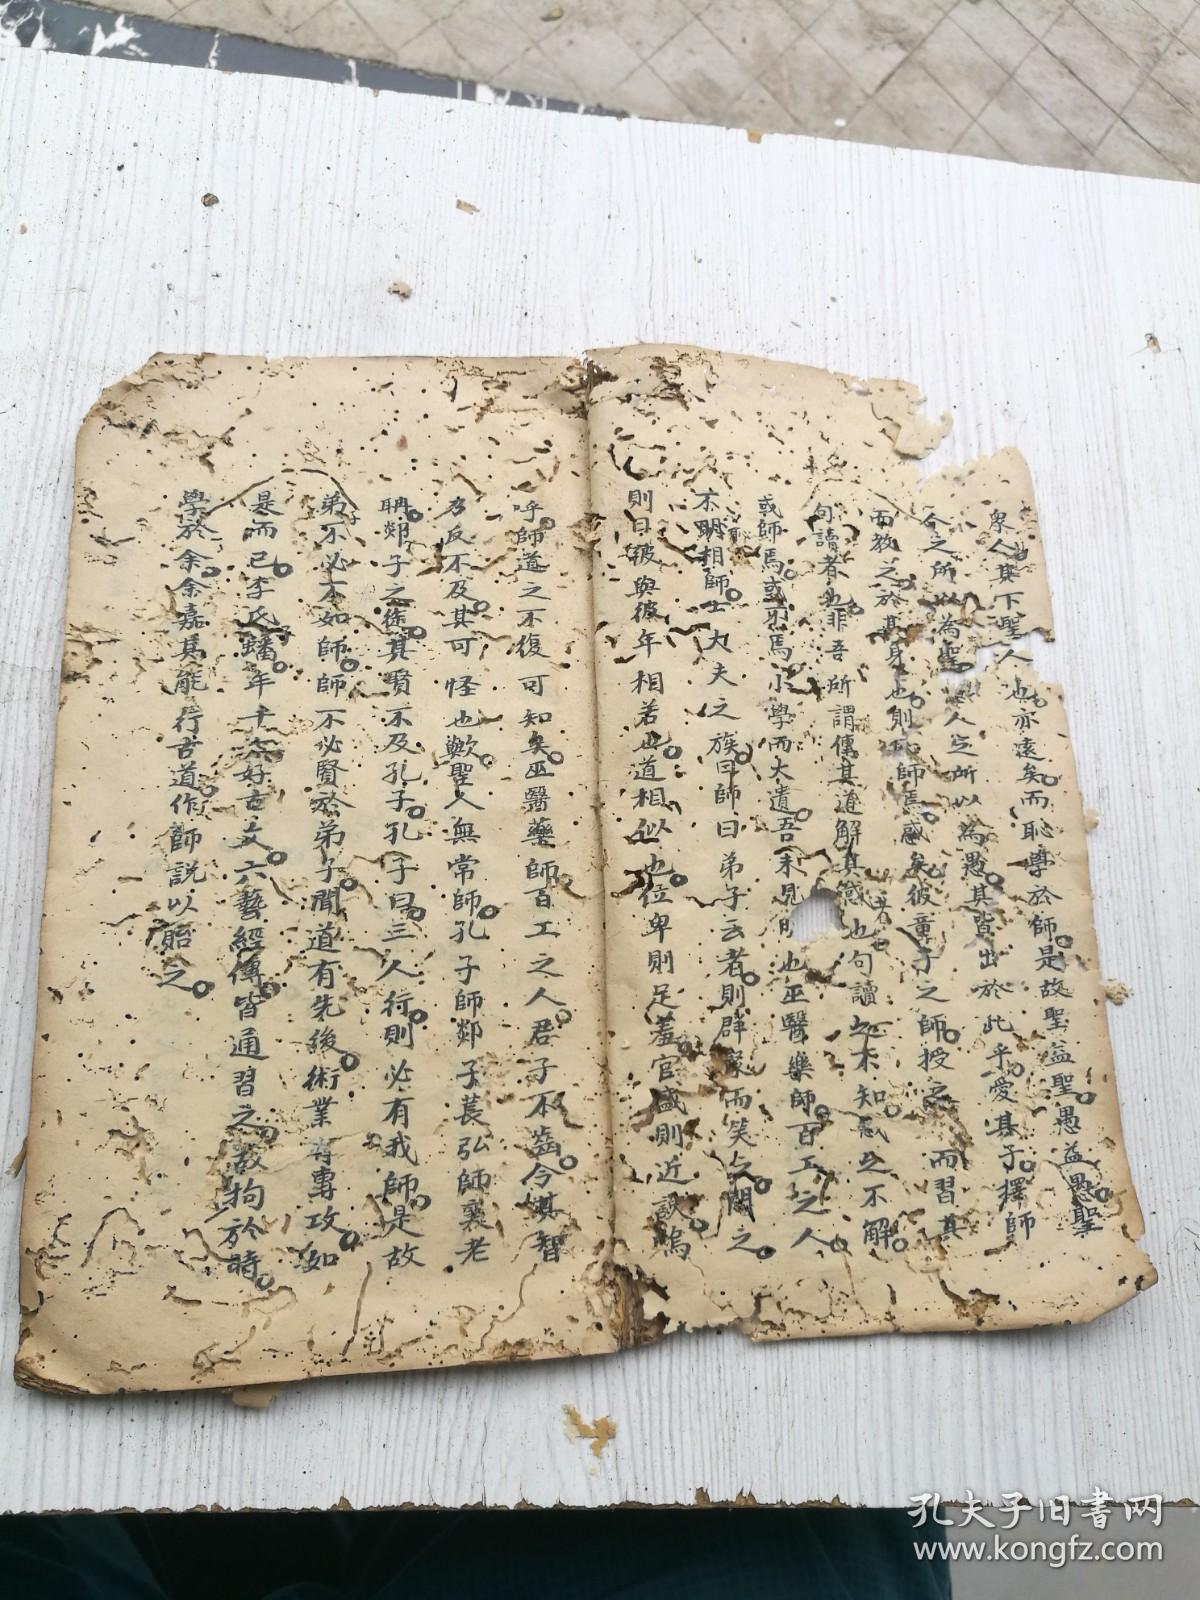 衆人其下聖人也亦遠矣而恥學於師是故聖益聖愚益愚聖
今之所以為聖人之所以為愚其皆出於此乎愛其子擇師
而教之於其身也則師焉惑矣彼童子之師授之而習其
句讀者也非吾所謂傳其道解其惑者也句讀之不知惑之不解
或師焉或不焉小學而大遺吾未見明也巫醫樂師百工之人
不明相師士大夫之族曰師曰弟子云者則群聚而笑之問之
則曰彼與彼年相若也道相似也位卑則足羞官盛則近諛嗚
呼師道之不復可知矣巫醫藥師百工之人君子不齒今其智
乃反不及其可怪也歟聖人無常師孔子師郯子萇弘師襄老
聃郯子之徒其賢不及孔子孔子曰三人行則必有我師是故
弟子不必不如師師不必賢於弟子聞道有先後術業有專攻如
是而已李氏子蟠年十六好古文六藝經傳皆通習之不拘於時
學於余余嘉其能行古道作師説以貽之
孔夫子旧书网
www.kongfz.com